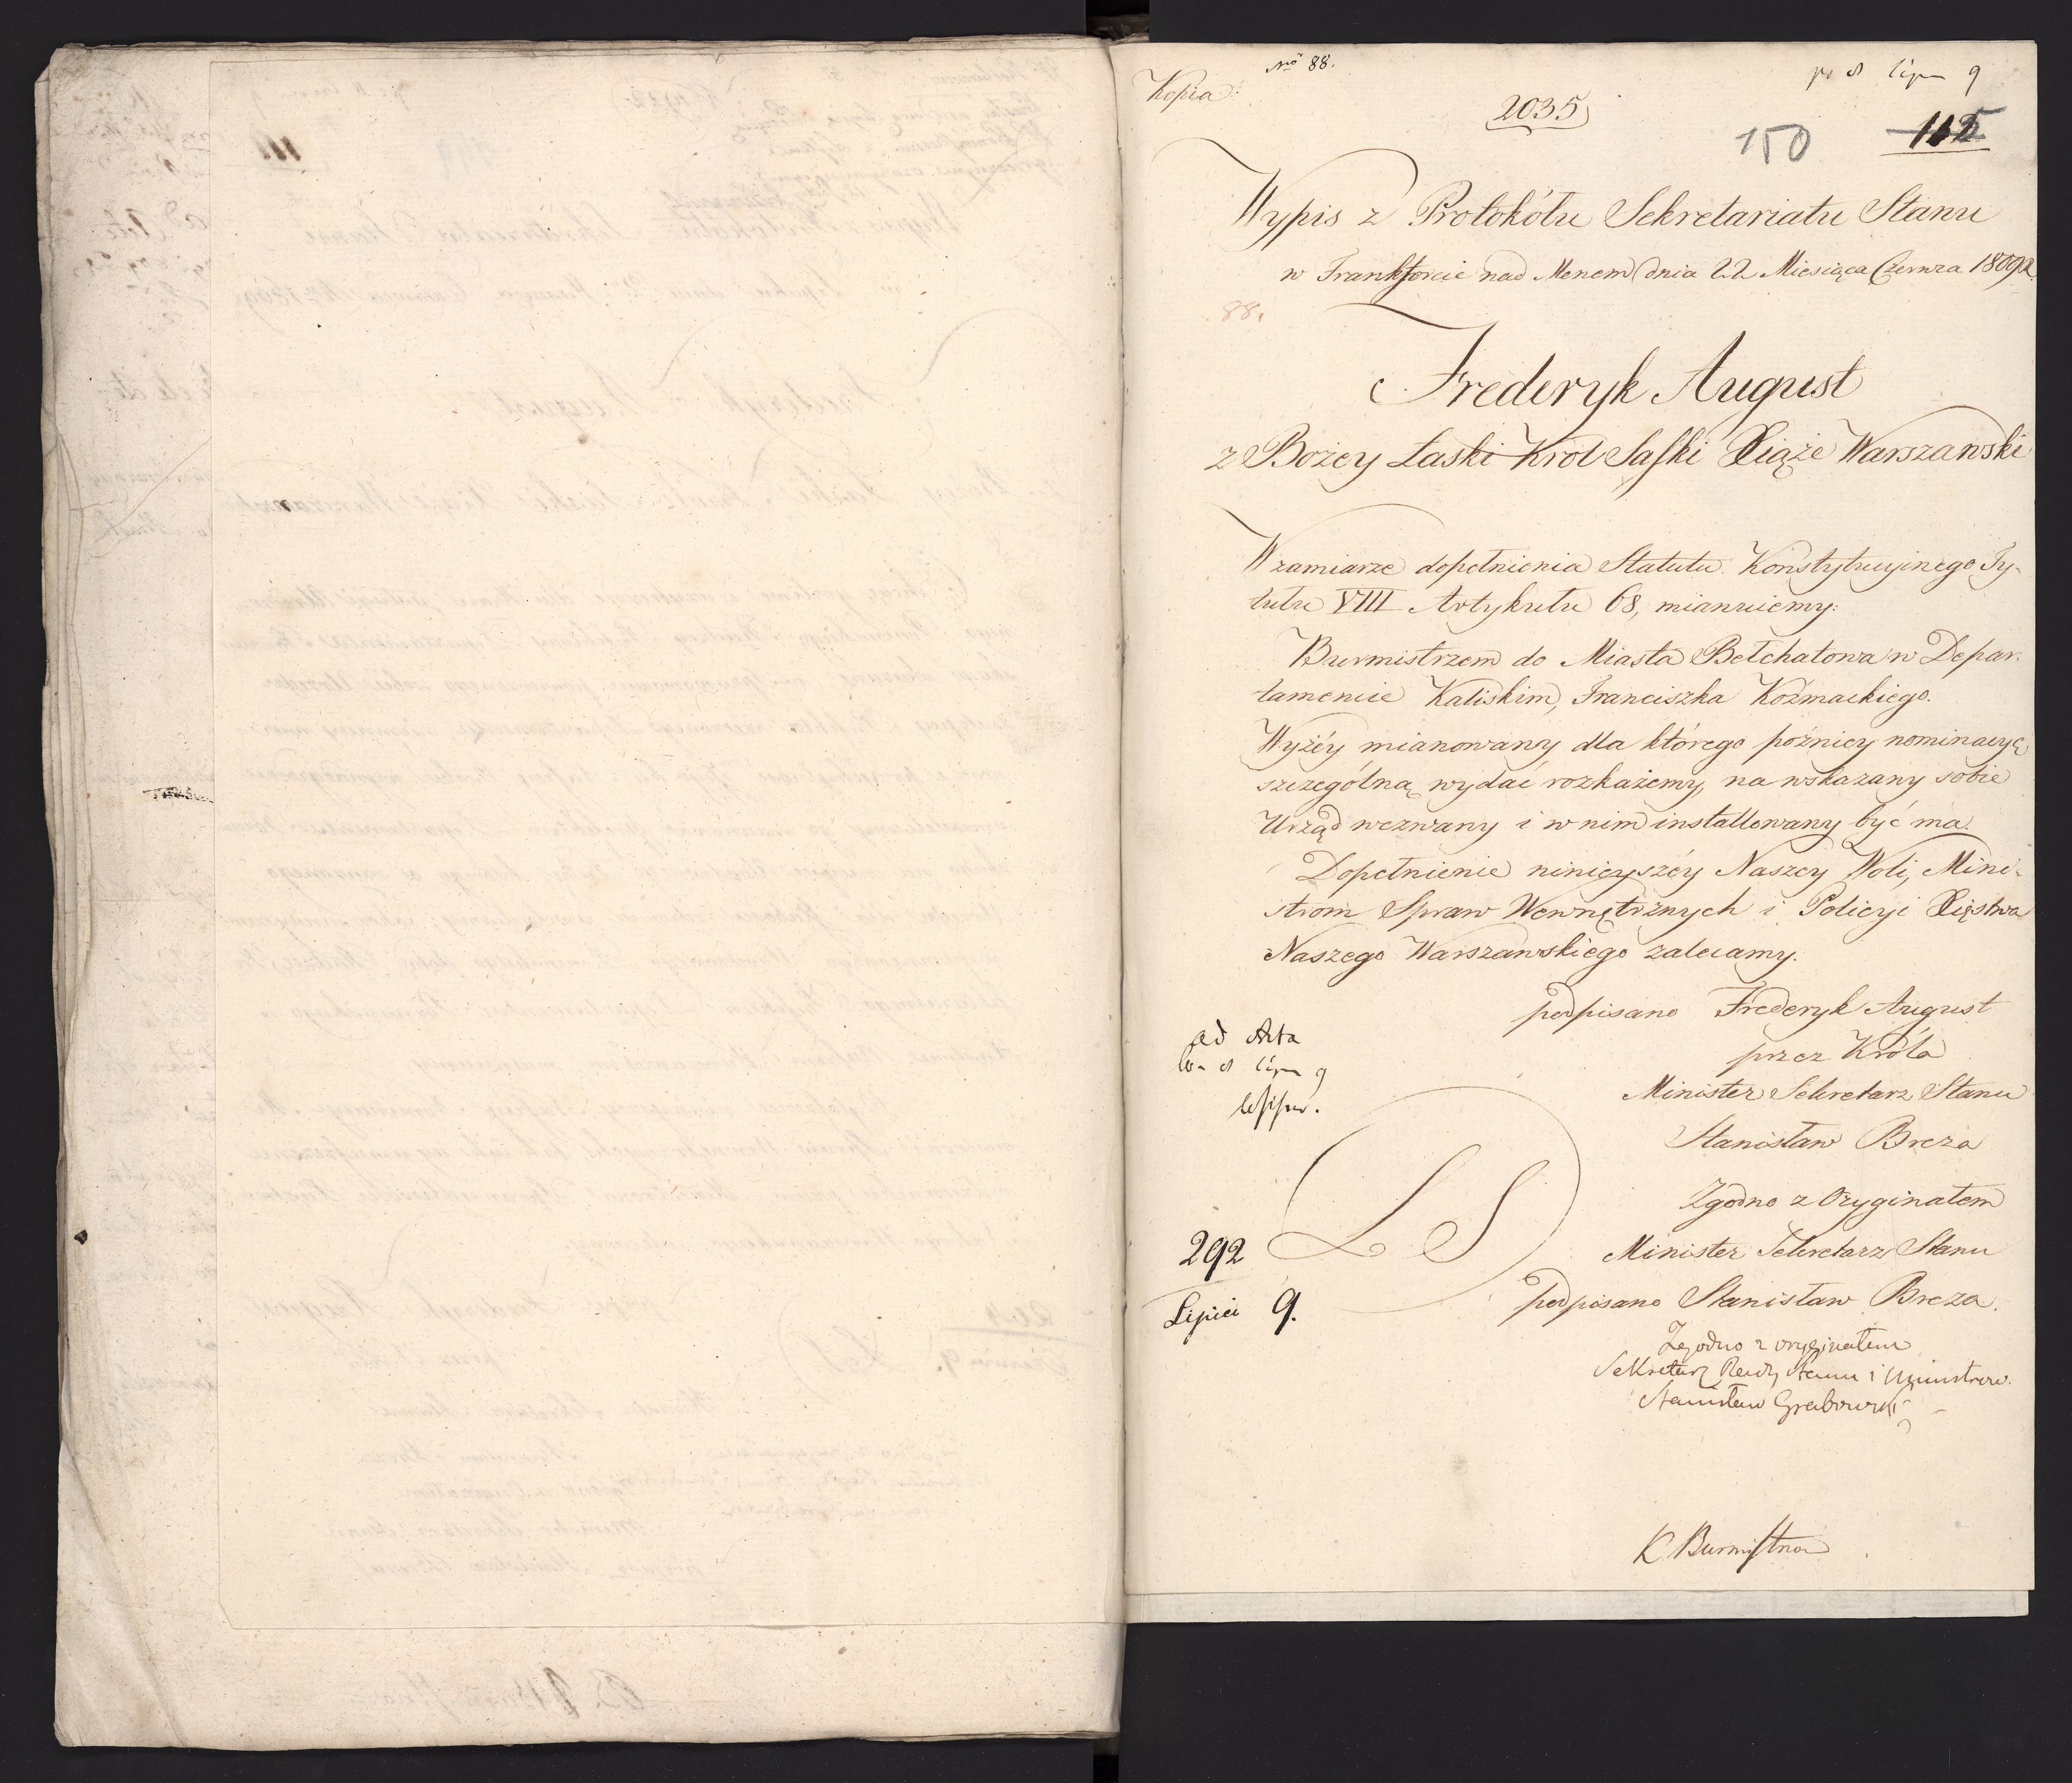 Kopia.
Nro 88.
2035
pr 8 lipca 9
150
Wypis z Protokółu Sekretariatu Stanu
w Frankforcie nad Menem dnia 22 Miesiąca Czerwca 1809 R.
88.
Frederyk August
z Bożey Łaski Krol Saski Xiąże Warszawski
W zamiarze dopełnienia Statutu Konstytucyinego Ty-
tułu VIII Artykułu 68, mianuiemy:
Burmistrzem do Miasta Bełchatowa w Depar-
tamencie Kaliskim, Franciszka Koźmackiego.
Wyżéy mianowany dla którego pożniey nominacyą
szczególną wydać rozkażemy, na wskazany sobie
Urząd wezwany i w nim installowany być ma.
Dopełnienie ninieyszéy Naszey Woli, Mini-
strom Spraw Wewnętrznych i Policyi Xięstwa
Naszego Warszawskiego zalecamy.
podpisano Frederyk August
przez Króla
Minister Sekretarz Stanu
Stanisław Breza
ad Acta
8 lipca 9
L S
Zgodno z Oryginałem
Minister Sekretarz Stanu
podpisano Stanisław Breza.
292
Lipiec 9.
Zgodno z oryginałem
Sekretarz Rady Stanu i Ministrow.
Stanisław Grabowski
K Burmistrza